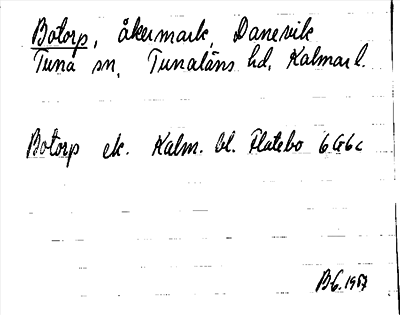 Botorp, åkermark, Danevik
Tuna sn, Tunaläns hd, Kalmar l.
Botorp ek. Kalm. bl. Flatebo 6G6c
BG. 1957